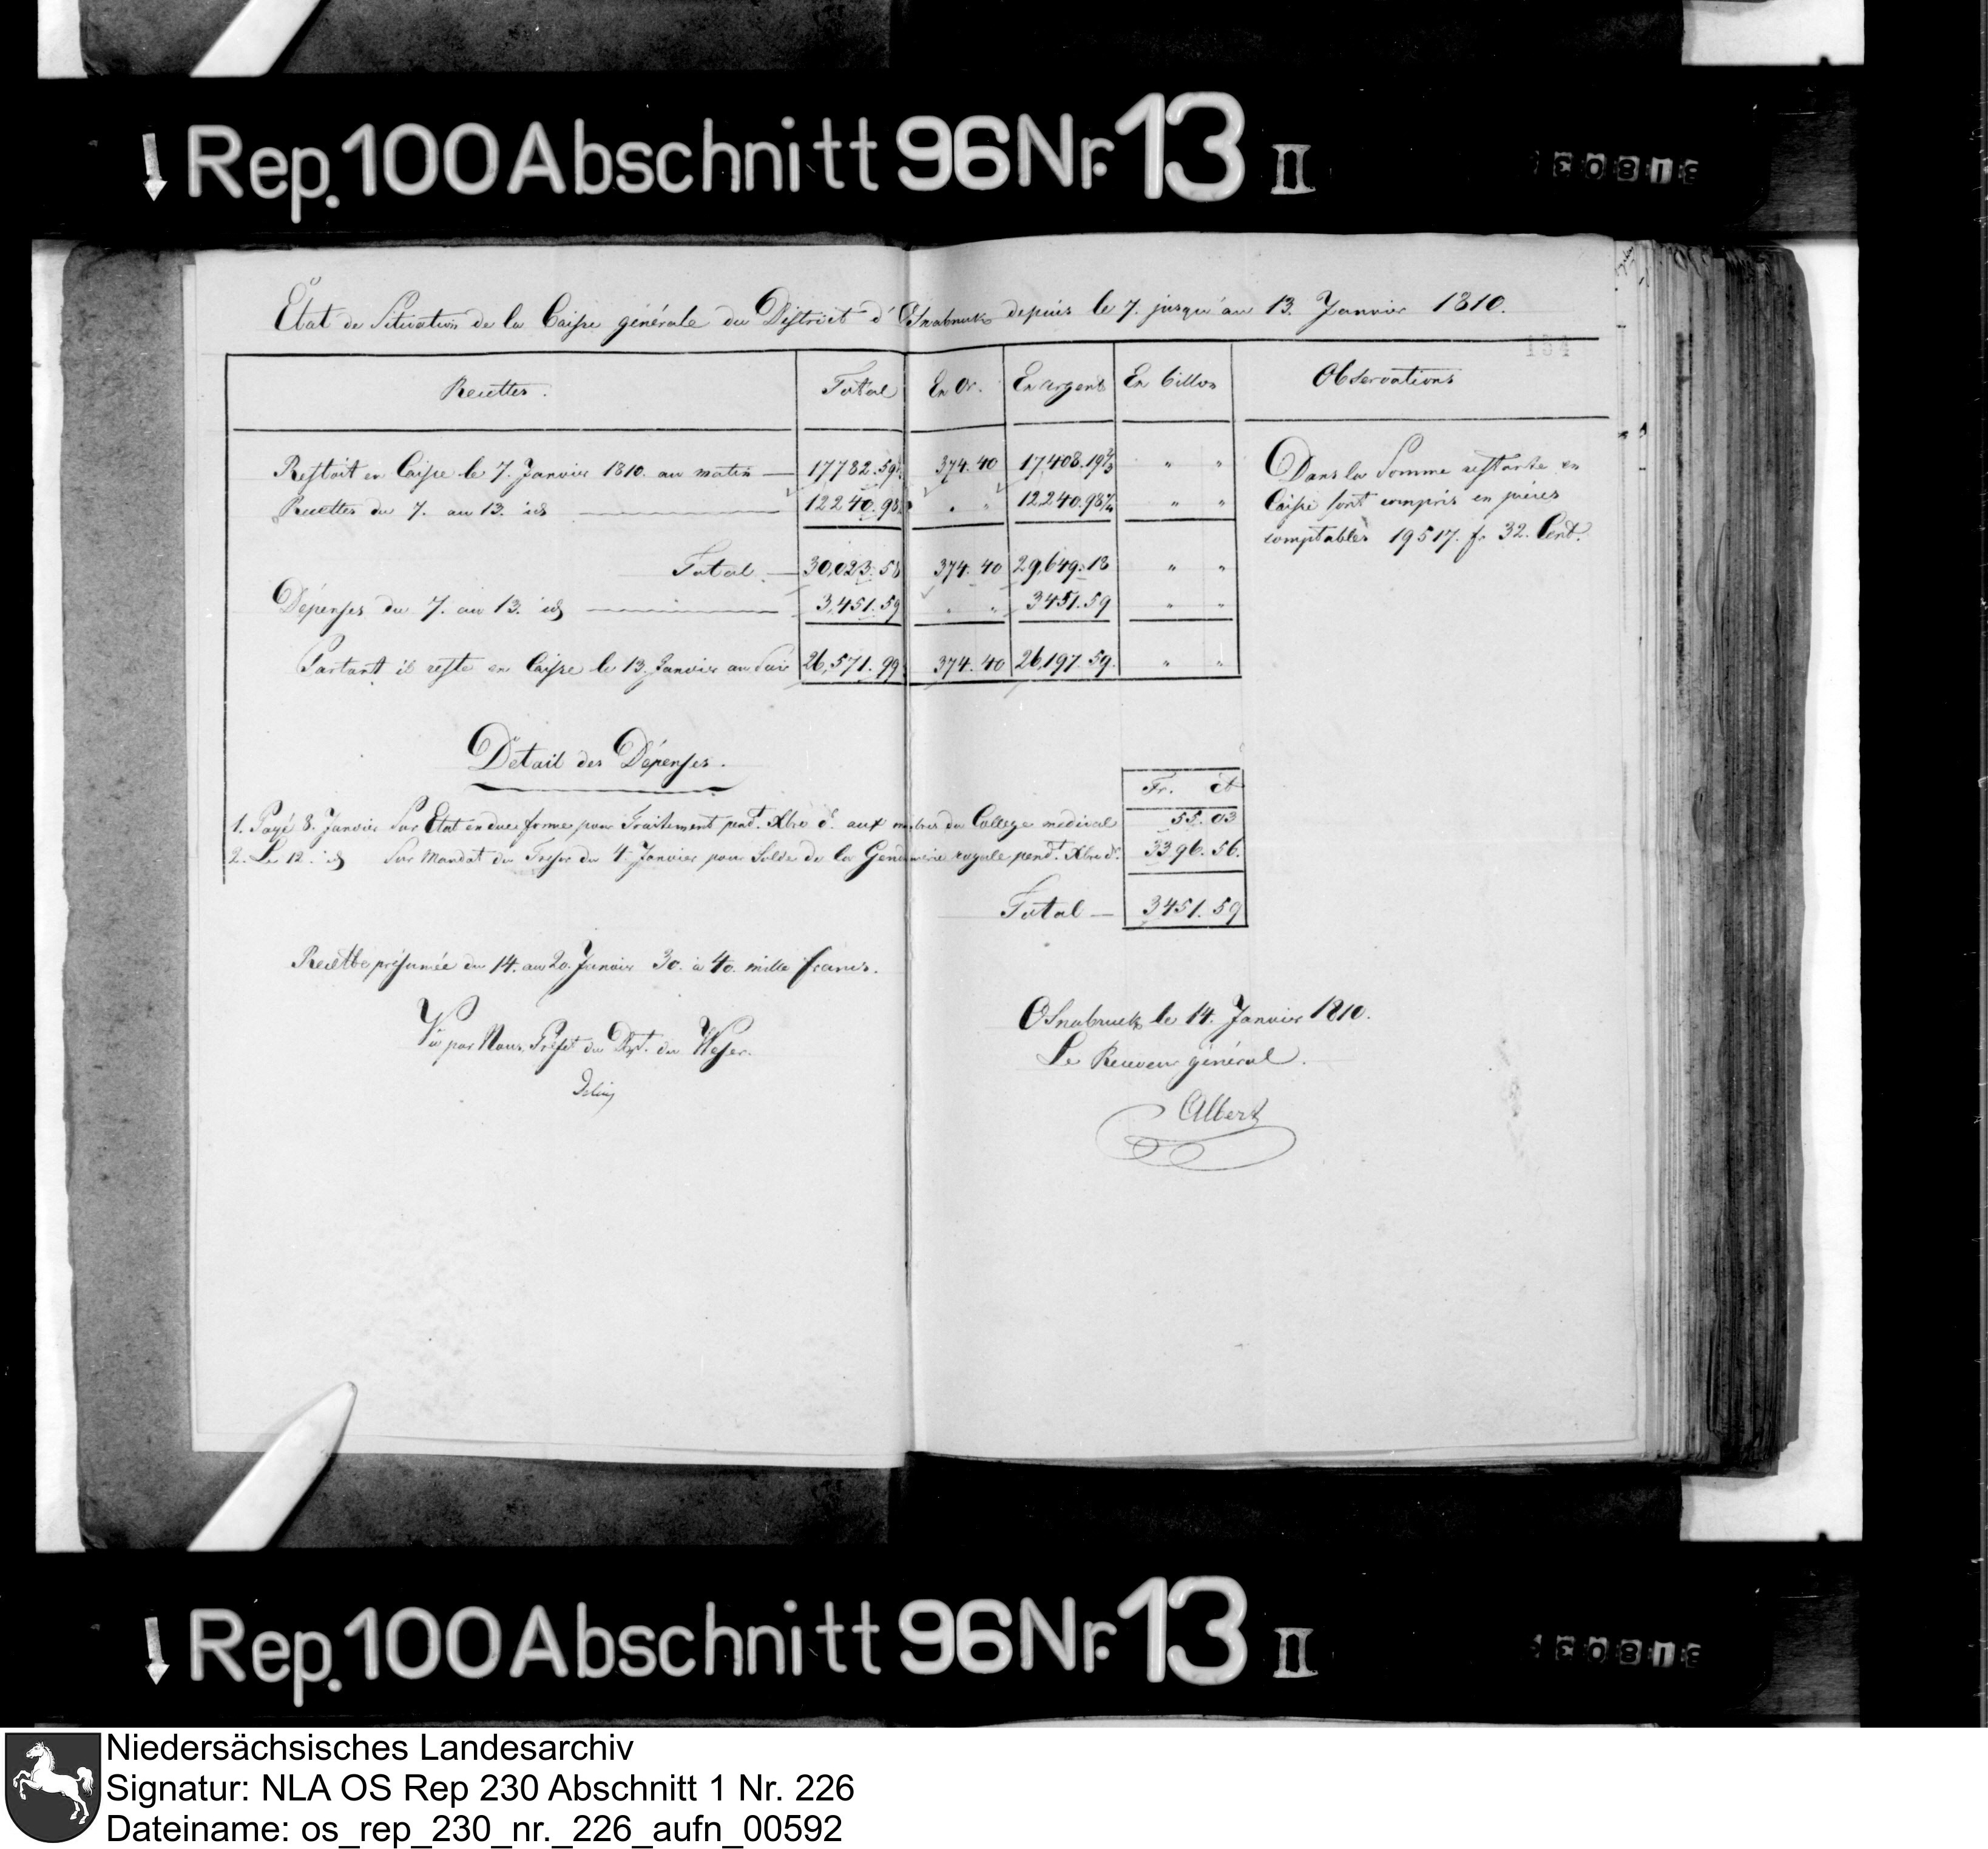 Rep. 100 Abschnitt 96 Nr. 13 II
État de Situation de la Caisse générale du District d'Osnabruck depuis le 7. jusqu'au 13. Janvier 1810.
Recettes. Total En Or. En argent En billon Observations
Restait en Caisse le 7. Janvier 1810. au matin — 17782.59 374.40 17,408.19 " "
Recettes du 7. au 13. id — 12240.98 " " 12,240.98 " "
Total — 30,023.58 374.40 29,649.18 " "
Dépenses du 7. au 13. id — 3,451.59 " " 3451.59 " "
Partant il reste en Caisse le 13. Janvier au Soir 26,571.99 374.40 26,197.59. " "
Dans la Somme restante en
Caisse sont compris en pièces
comptables 19517. fr 32. Cent.
Détail des Dépenses.
Fr. ct
1. Payé 8. Janvier Sur Etat en due forme pour Traitement pend.t Xbre d. aux membres du College medical 55.03
2. Le 12. id Sur Mandat du Tresor du 4. Janvier pour Solde de la Gendarmerie royale pend.t Xbre d. 3396.56.
Total — 3451.59
Recette présumée du 14. au 20. Janvier 30. à 40. mille francs.
Vu par Nous, Préfet du Dept. du Weser.
Osnabruck le 14. Janvier 1810.
Le Receveur général.
Albert
Rep. 100 Abschnitt 96 Nr. 13 II
Niedersächsisches Landesarchiv
Signatur: NLA OS Rep 230 Abschnitt 1 Nr. 226
Dateiname: os_rep_230_nr._226_aufn_00592